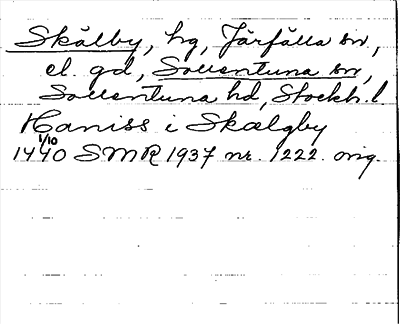 Skälby, hg, Järfälla sn,
el. gd, Sollentuna sn,
Sollentuna hd, Stockh. l
Haniss i Skælgby
1/10
1440 SMR 1937 nr. 1222. orig.